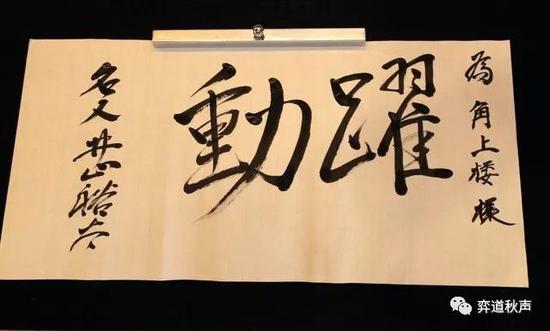 為 角上楼様
躍動
名人 井山裕太
弈道秋声